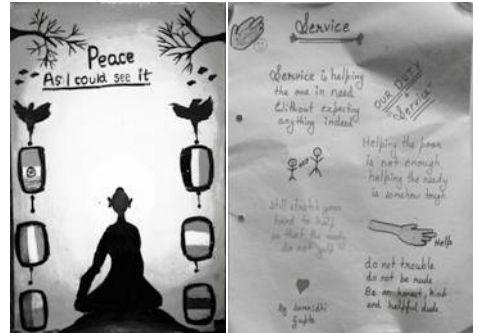 Peace
As I could see it
Service
Service is helping
the one in need
Without expecting
anything indeed
OUR DUTY
Service
Helping the poor
is not enough
helping the needy
is somehow tough
Still stretch your
hand to help
so that the needy
do not
Help
do not trouble
do not be rude
Be an honest, kind
and helpful dude.
By
Gupta